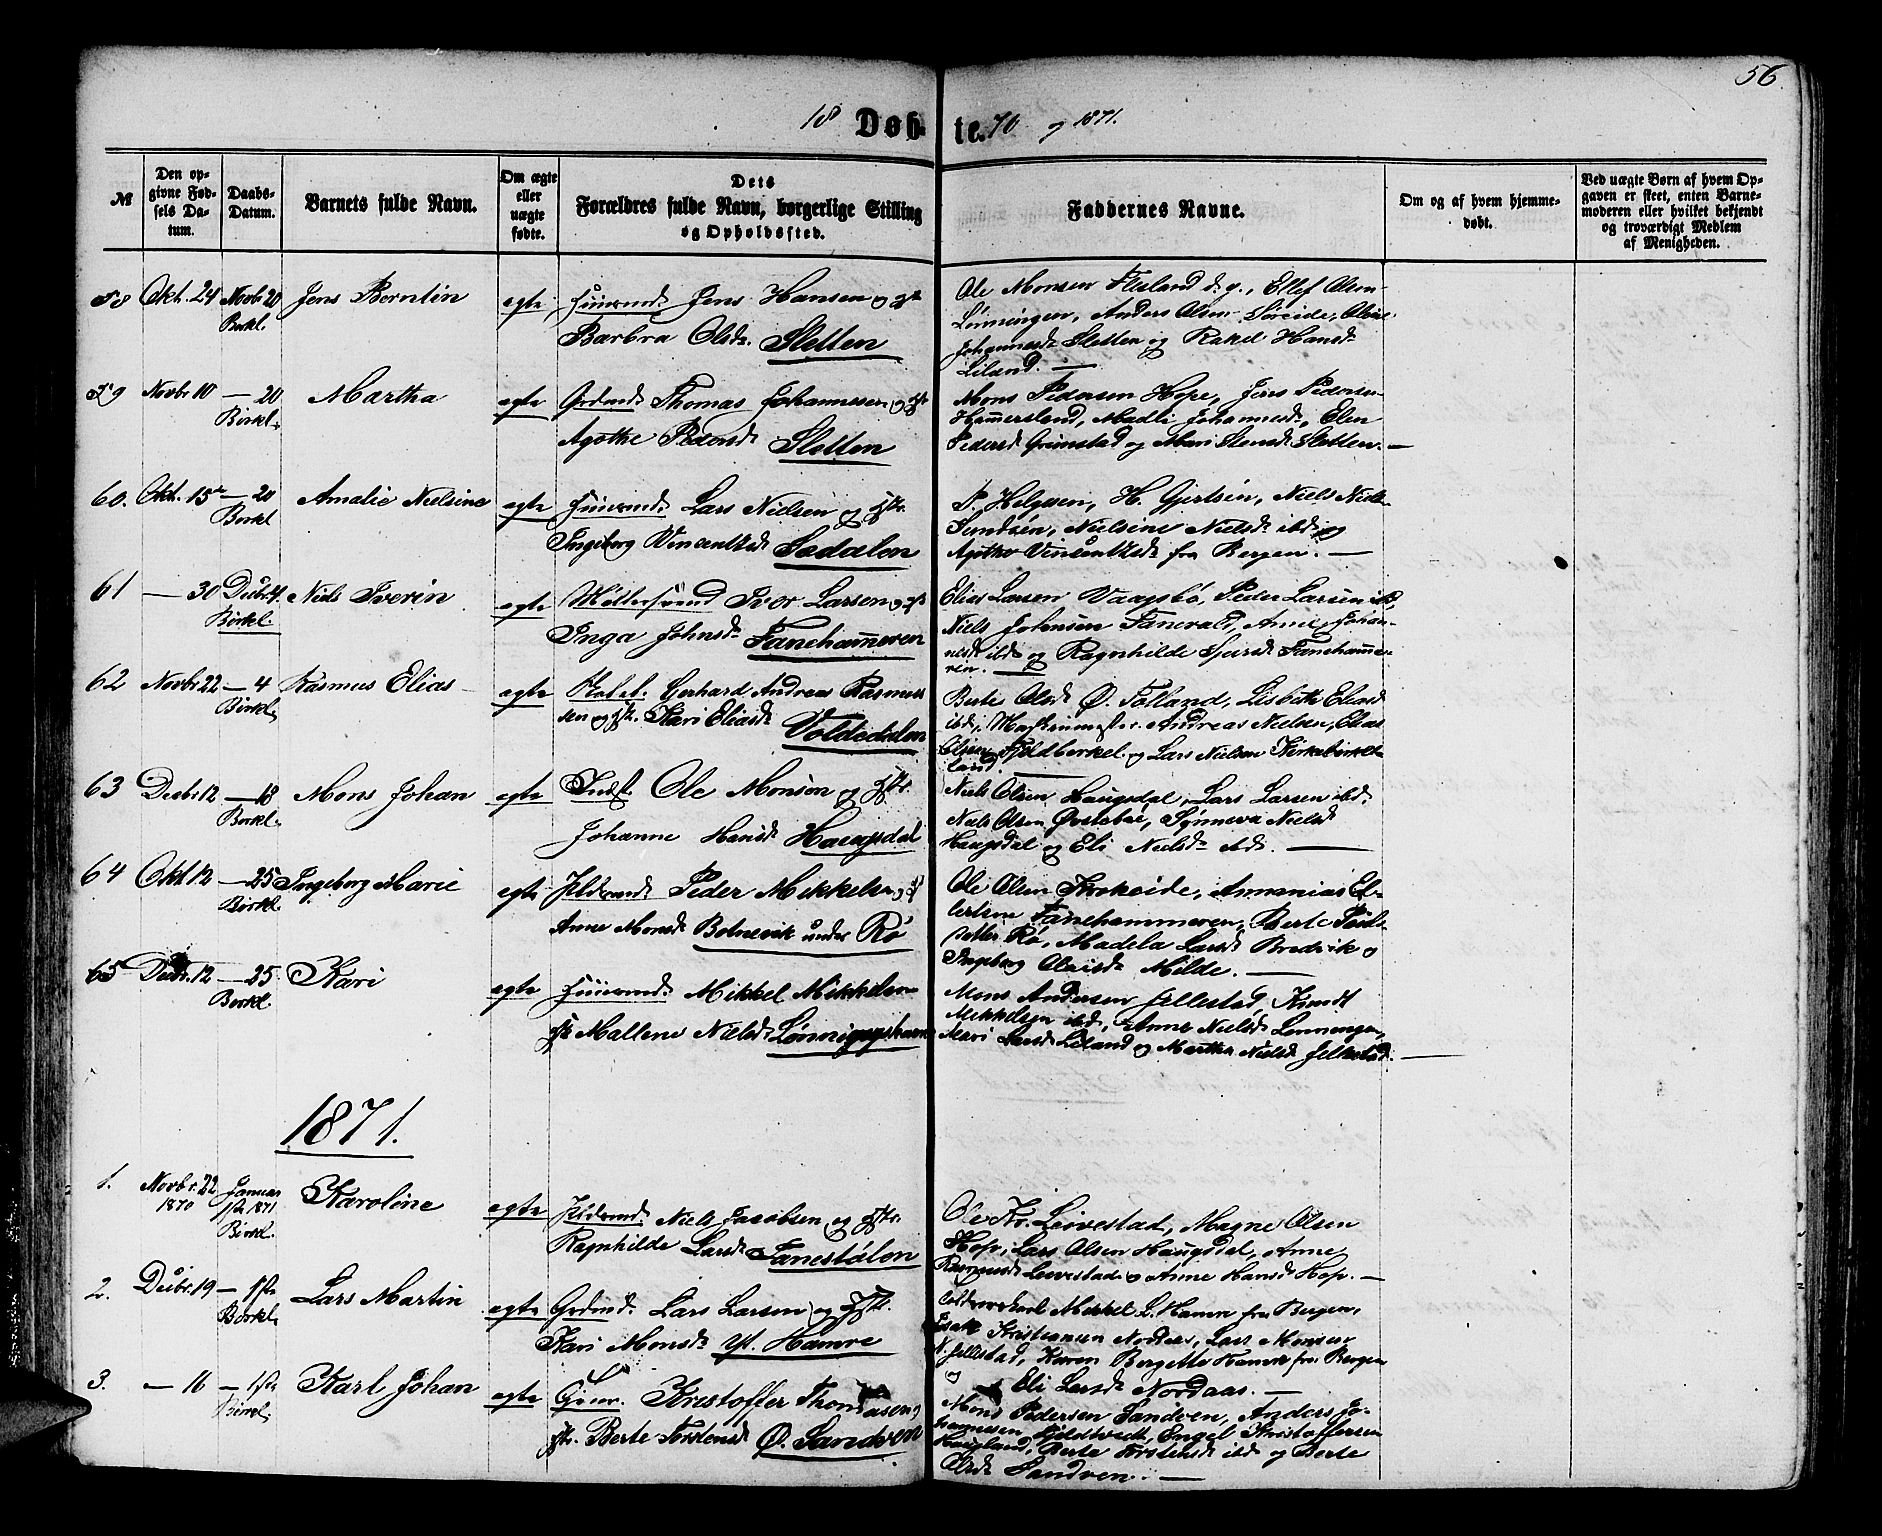 56.
18 Døbte. 70 og 1871.
№
Den opgivne Fødsels Datum.
Daabs-Datum.
Barnets fulde Navn.
Om ægte eller uægte fødte.
Dets Forældres fulde Navn, borgerlige Stilling og Opholdssted.
Faddernes Navne.
Om og af hvem hjemmedøbt.
Ved uægte Børn af hvem Opgaven er skeet, enten Barnemoderen eller hvilket bekjendt og troværdigt Medlem af Menigheden.
58 Okt. 24 Novbr 20 Jens Berntin egte Huusmd. Jens Hansen og Hstr.
Birkl. Barbra Olsdr. Sletten
Ole Monsen Flesland d. y., Ellef Olsen
Lønningen, Anders Olsen Søreide,
Johannesdr Sletten og Rakel Hansdr
Liland. —
59 Novbr 10 — 20 Martha egte Grdmd. Thomas Johannesen og Hstr
Birkl. Agothe Pedersdr Sletten
Mons Pedersen Hope, Jens Pedersen
Hammersland, Madli Johannesdr, Elen
Pedersdr Grimstad og Mari Stensdr Sletten. —
60. Okt. 15de — 20 Amalie Nielsine egte Huusmd. Lars Nielsen og Hstr.
Birkl Ingeborg Vincentsdr Sædalen
P. Helgesen, H. Gjertsen, Niels Niels
Nielsine Nielsdr ibd og
Agothe Vinsentsdr fra Bergen. —
61 — 30 Decbr 4. Niels Iverin egte Iver Larsen og Hstr
Birkl. Inga Johnsdr Fanehammeren
Elias Larsen Vaagsbø, Peder Larsen ibd,
Niels Johnsen Fanevald, Anne Johan-
nesdr ibd og Ragnhilde Sjursdr Fanehamme-
ren.
62 Novbr 22 — 4 Rasmus Elias egte Gerhard Andreas Rasmus
Birkl. sen og Hstr. Kari Eliasdr Voldedalen
Berte Olsdr Ø. Folland, Lisbeth Eliasdr
ibd, Maskinmester Andreas Nielsen, Elias
Olsen Fjeldberkel. og Lars Nielsen Kirkebirke-
land.
63 Decbr 12 — 18 Mons Johan egte Indst. Ole Monsen og Hstr.
Birkl. Johanne Hansdr Haugsdal
Niels Olsen Haugsdal, Lars Larsen ibd,
Niels Olsen Øvstebø, Synneva Nielsdr
Haugsdal og Eli Nielsdr ibd. —
64 Okt 12 — 25 Ingeborg Marie egte Peder Mikkelsen og Hstr
Birkl. Anne Monsdr Botnevik under Rø
Ole Olsen Krokeide, Ammenias El-
lertsen Fanehammeren, Berte Peders-
datter Rø, Madela Larsdr Bredvik og
Ingeborg Olaisdr Milde. —
65 Decbr. 12 — 25. Kari egte Huusmd. Mikkel Mikkelsen
Birkl. Hstr Mallene Nielsdr Lønningshavn
Mons Andersen Jellestad, Knudt
Mikkelsen ibd, Anne Nielsdr Lønningen,
Mari Larsdr Liland og Martha Nielsdr Jellestad. —
1871.
1. Novbr. 22 Januar Karoline egte Niels Jacobsen og Hstr.
1870 1ste 1871 Ragnhilde Larsdr Fanestølen
Birkl.
Ole Kr. Leivestad, Magne Olsen
Hop, Lars Olsen Haugsdal, Anne
Rasmusdr Leivestad og Anne Hansdr Hop. —
2. Decbr. 19 — 1ste Lars Martin egte Grdmd. Lars Larsen og Hstr.
Birkl. Kari Monsdr Yt. Hamre
Mikkel L. Hamre fra Bergen,
Isak Kristiansen Nordaas, Lars Monsen
Jellestad, Karen Bergette Hamre fra Bergen
og Eli Larsdr Nordaas. —
3. — 16 — 1ste Karl Johan egte Kristoffer Thomasen,
Birkl. Hstr. Berte Torstensdr Ø. Sandven
Mons Pedersen Sandven, Anders Jo-
hannesen Engel Kristoffersen
Haugland, Berta Torstensdr ibd og Berte
Olsdr Sandven. —